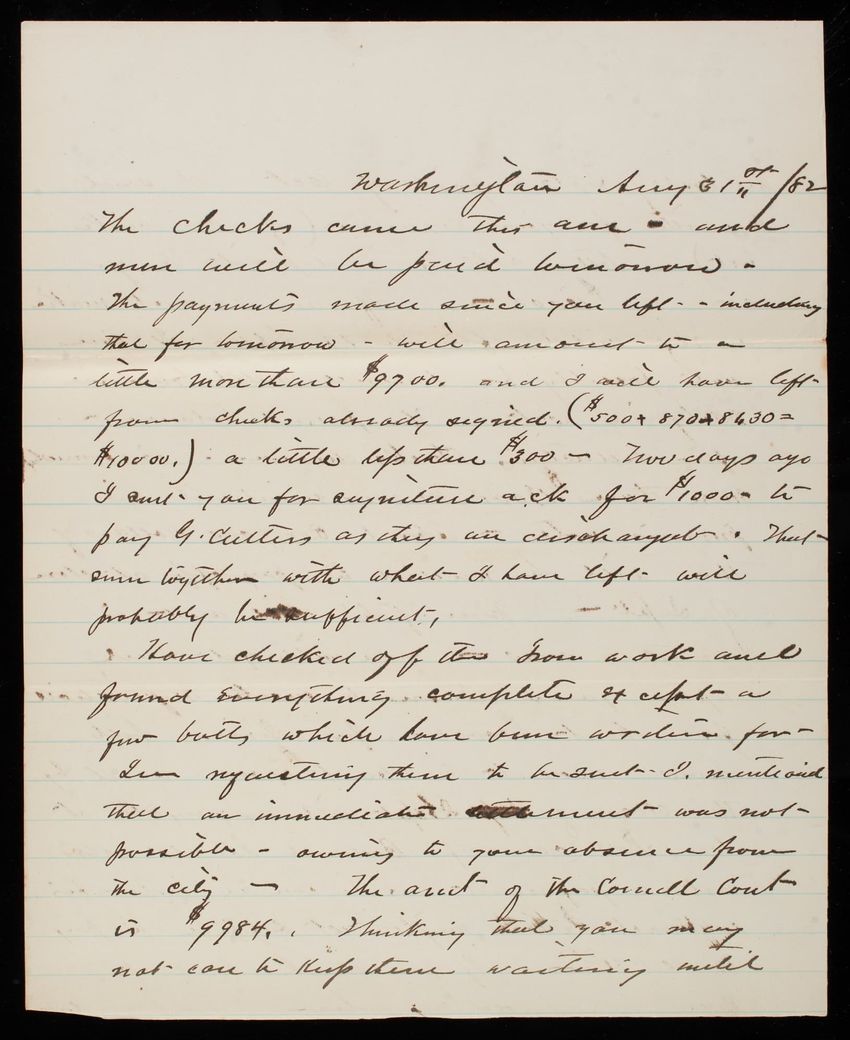 Washington Aug 31st /82
The checks came this am - and
men will be paid tomorrow -
The payments made since you left - including
that for tomorrow - will amount to a
little more than $9700. and I will have left
from checks already signed. ($500+ 870+8630=
$10000.) - a little less than $300 - Two days ago
I sent you for signiture a ck for $1000- to
pay G. Cutters as they are discharged. That
sum together with what I have left will
probably be sufficient,
Have checked off the Iron work and
found everything complete except a
few bolts which have been written for -
In requesting them to be sent I. mentioned
that an immediate settlement was not
possible - owing to your absence from
the city - The amt of the Cornell Cont
is $9984. . Thinking that you may
not care to keep them waiting until